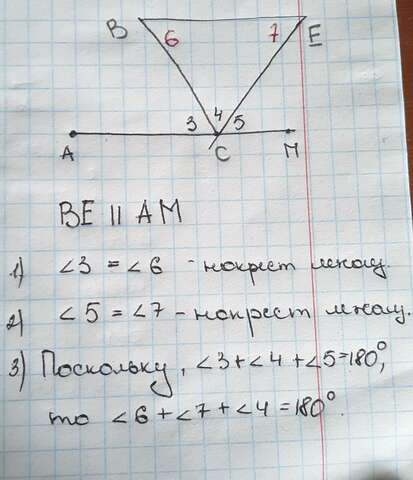 B 6 7 E
3 4 5
A C M
BE || AM
1) ∠3 = ∠6 - накрест лежащ.
2) ∠5 = ∠7 - накрест лежащ.
3) Поскольку, ∠3+∠4+∠5=180°,
то ∠6+∠7+∠4=180°.